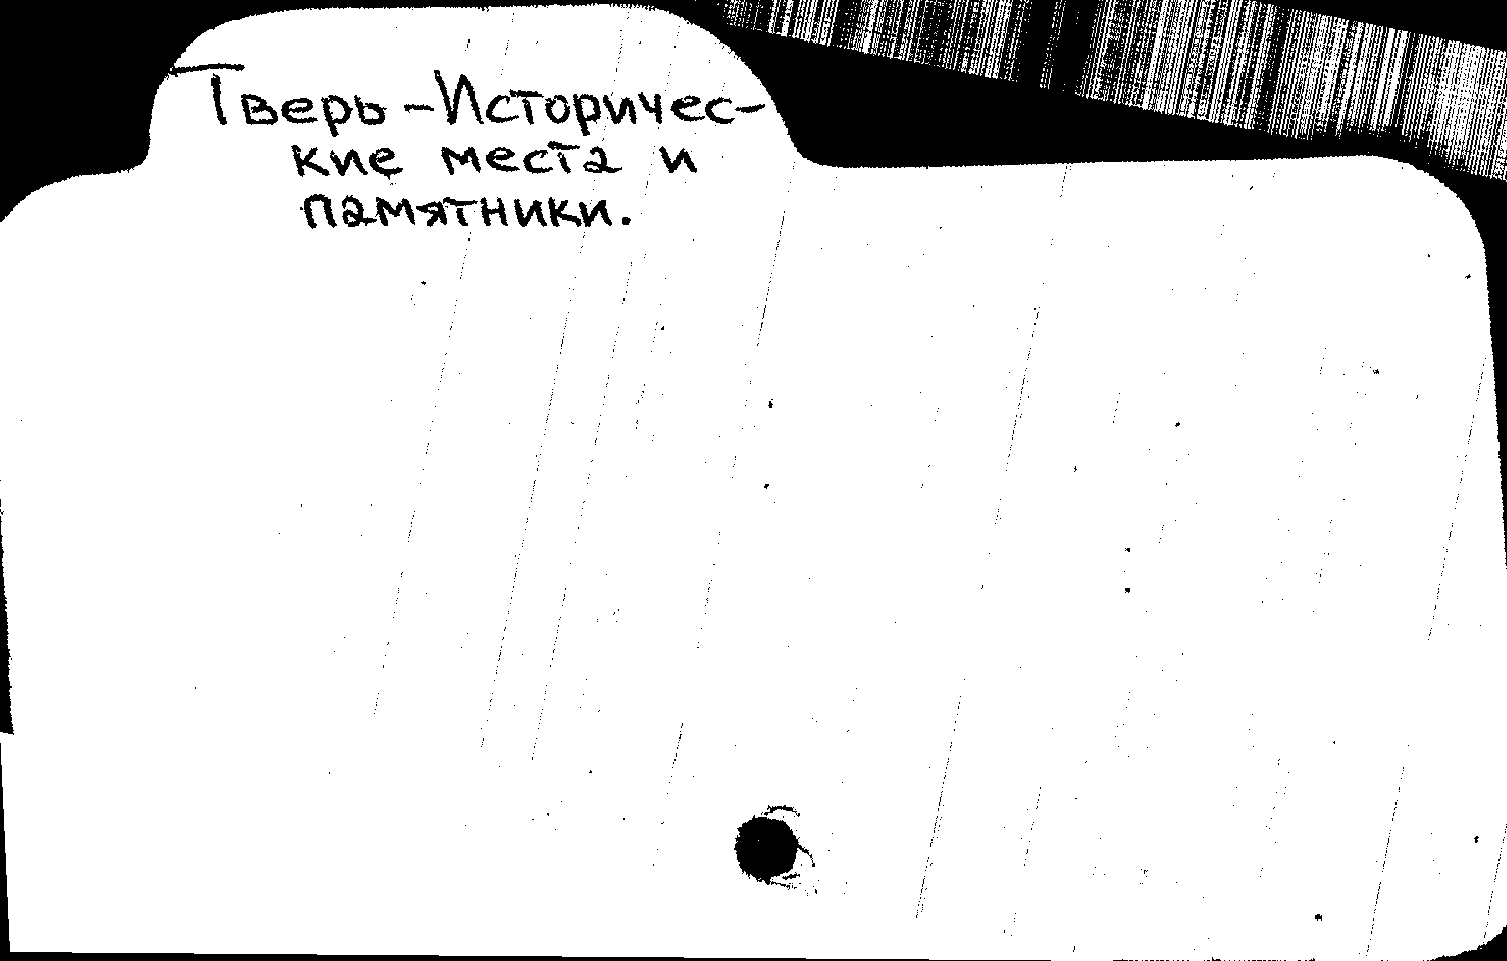 Тверь-Историчес-
кие места и
памятники.